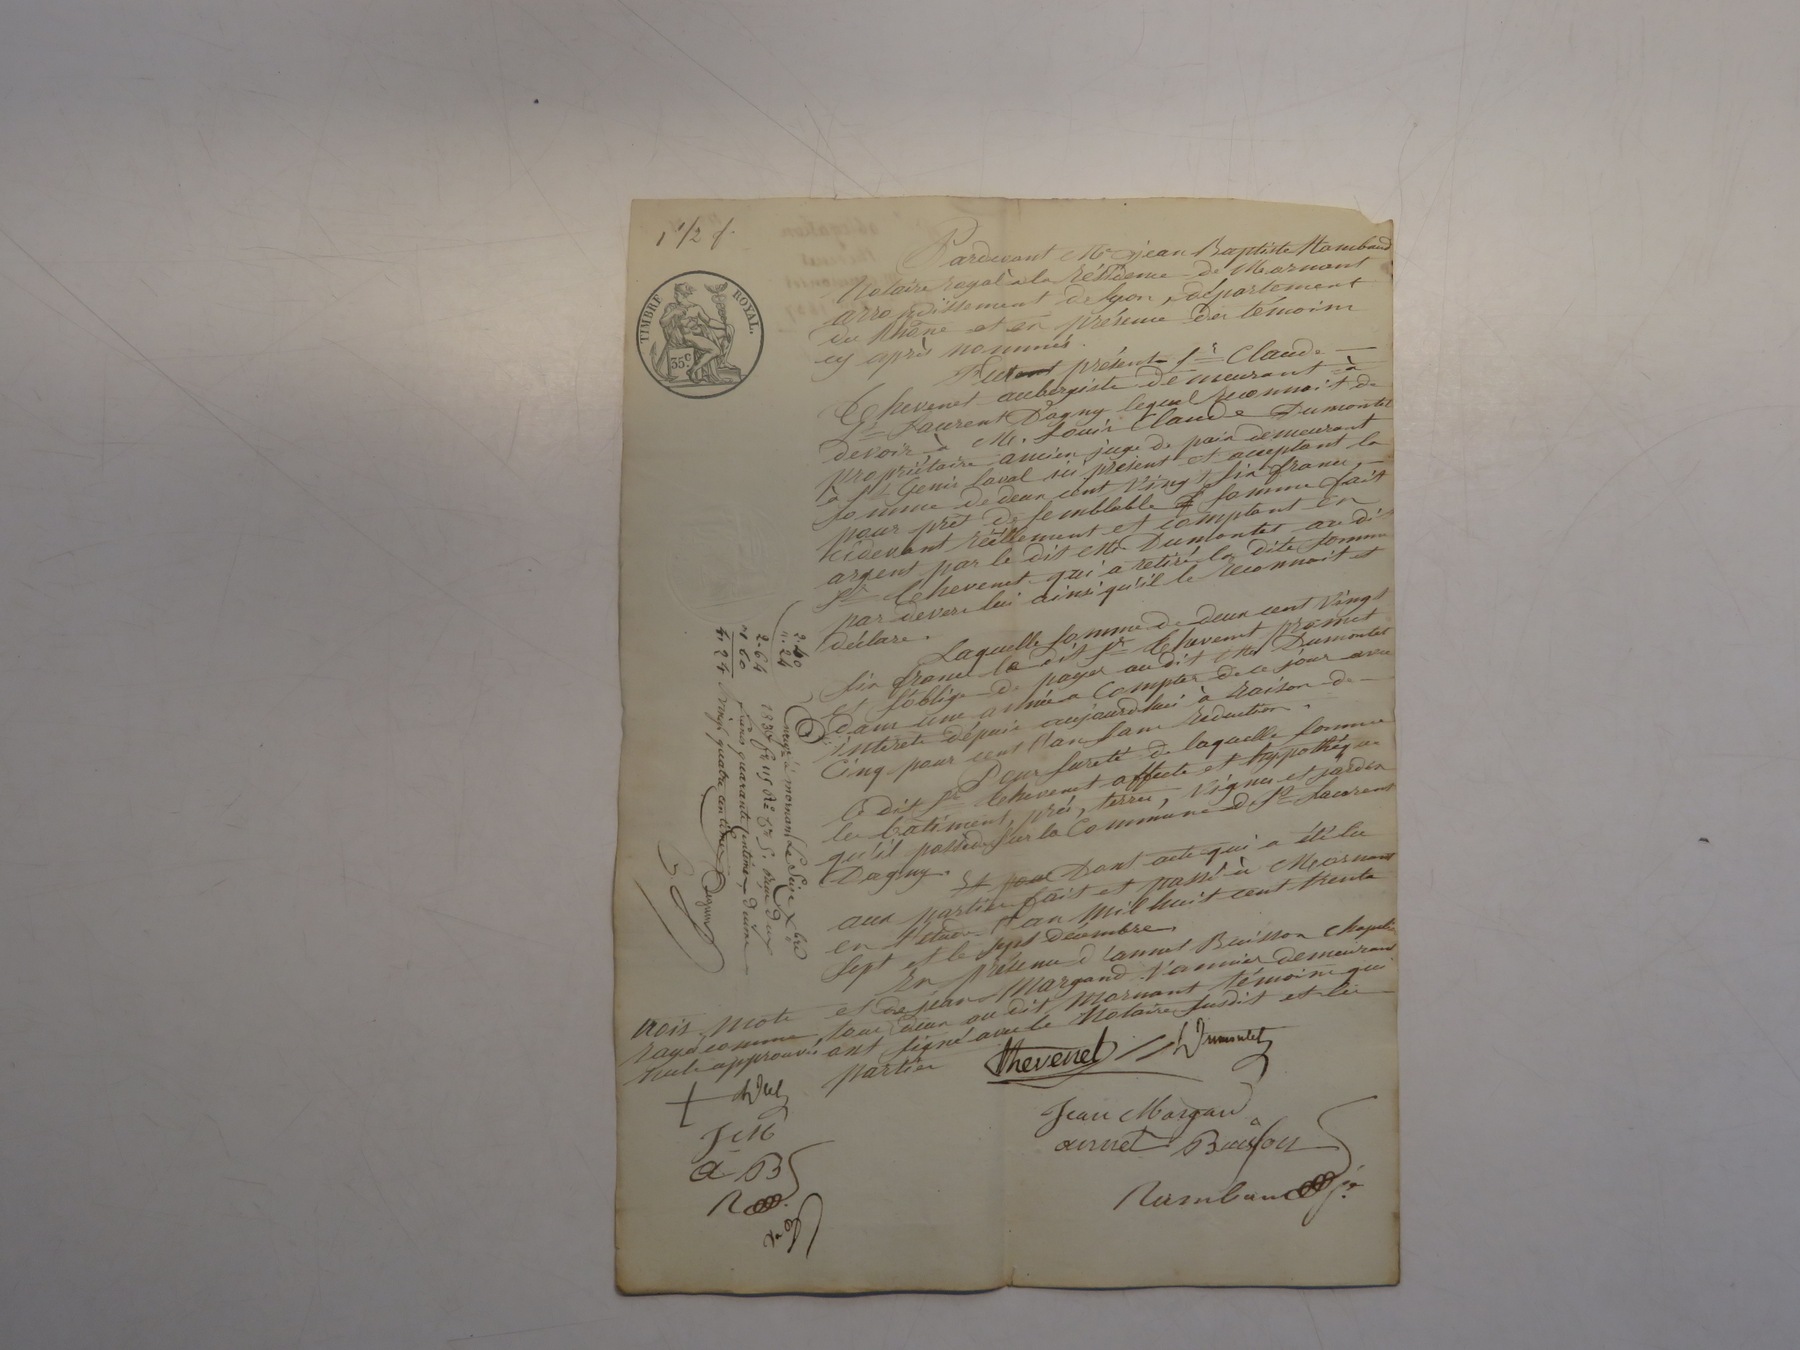 1 1/2 f.
TIMBRE ROYAL.
35 c.
Pardevant Me jean Baptiste Rambaud
Notaire royal à la résidence de Mornant
arrondissement de Lyon, département
du Rhône et en présence des témoins
cy après nommés.
présent Sr Claude
Thevenet aubergiste demeurant à
St Laurent D'agny lequel reconnoit de
devoir à Mr. Louis Claude Dumontet
propriétaire ancien juge de paix demeurant
à St Genis Laval ici présent et acceptant la
somme de deux cent vingt six francs
pour prêt de semblable somme fait
cidevant réellement et comptant en
argent par le dit Mr Dumontet au dit
Sr Thevenet qui a retiré la dite somme
par devers lui ainsi qu'il le reconnoit et
déclare.
Laquelle somme de deux cent vingt
six francs le dit Sr Thevenet promet
et s'oblige de payer au dit Mr Dumontet
dans une année a compter de ce jour avec
intérêts depuis aujourdhui à raison de
cinq pour cent l'an sans réduction.
Pour sureté de laquelle somme
le dit Sr Thevenet affecte et hypothèque
les bâtiment, prés, terres, vignes et jardin
qu'il possède sur la Commune de St Laurent
Dagny.
Et pour Dont acte qui a été lu
aux parties fait et passé à Mornant
en l'étude l'an mil huit cent trente
sept et le sept décembre.
En présence d'annet Buisson chapelier
et de jean Margand vannier demeurant
tous deux au dit Mornant témoins qui
ont signé avec le Notaire susdit et les
parties
trois mots
rayés comme
nuls approuvés
Thevenet
Dumontet
Jean Margand
annet Buisson
Rambaud
J M
A B
R
2.40
24
2.64
1 60
4. 24
Enregé à mornant Le Seize Xbre
1837 fo 115
francs quarante centimes
vingt quatre centimes